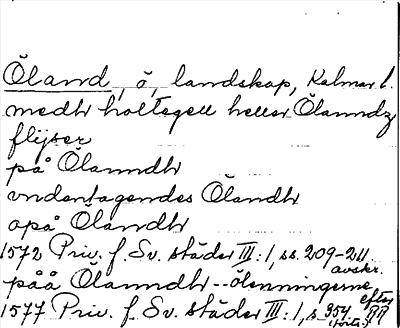 Öland, ö, landskap, Kalmar l.
medh holtegell heller Ölanndz
flijser
på Ölanndh
vndentagendes Ölandh
opå Ölandh
1572 Priv. f. Sv. städer III:1, ss. 209-211
avskr.
påå Ölanndh -- ölenningerne
efter
1577 Priv. f. Sv. städer III:1, s. 354
RR